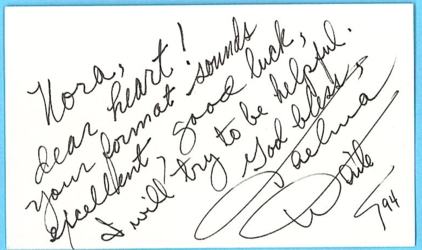 Nora,
dear heart!
your format sounds
excellent, good luck,
I will try to be helpful.
God bless,
Thelma
Waite
'94